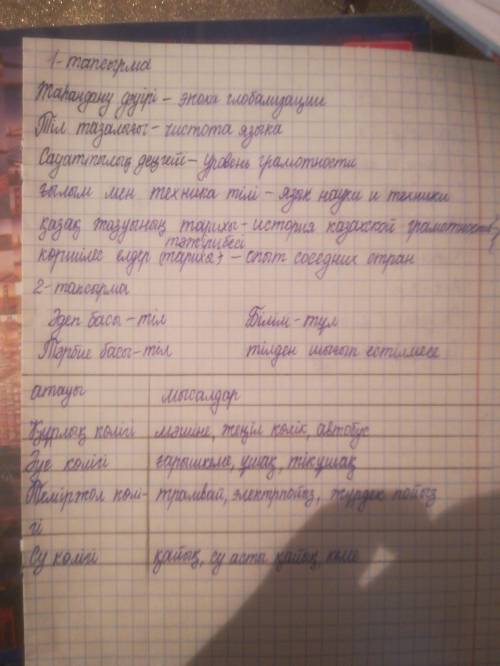 1-тапсырма
Жаһандану дәуірі - эпоха глобализации
Тіл тазалығы - чистота языка
Сауаттылық деңгей - уровень грамотности
ғылым мен техника тілі - язык науки и техники
қазақ жазуының тарихы - история казахской грамотность
тәжірибесі
көршілес елдер (тарихы) - опыт соседних стран
2-тапсырма
Әдеп басы - тіл Білім - тұл
Тәрбие басы - тіл тілден шығып естілмесе
атауы мысалдар
Құрлық көлігі машине, жеңіл көлік, автобус
Әуе көлігі ғарышкеме, ұшақ, тікұшақ
Теміржол көлі- трамвай, электрпойыз, жүрдек пойыз
гі
Су көлігі қайық, су асты қайық, кеме